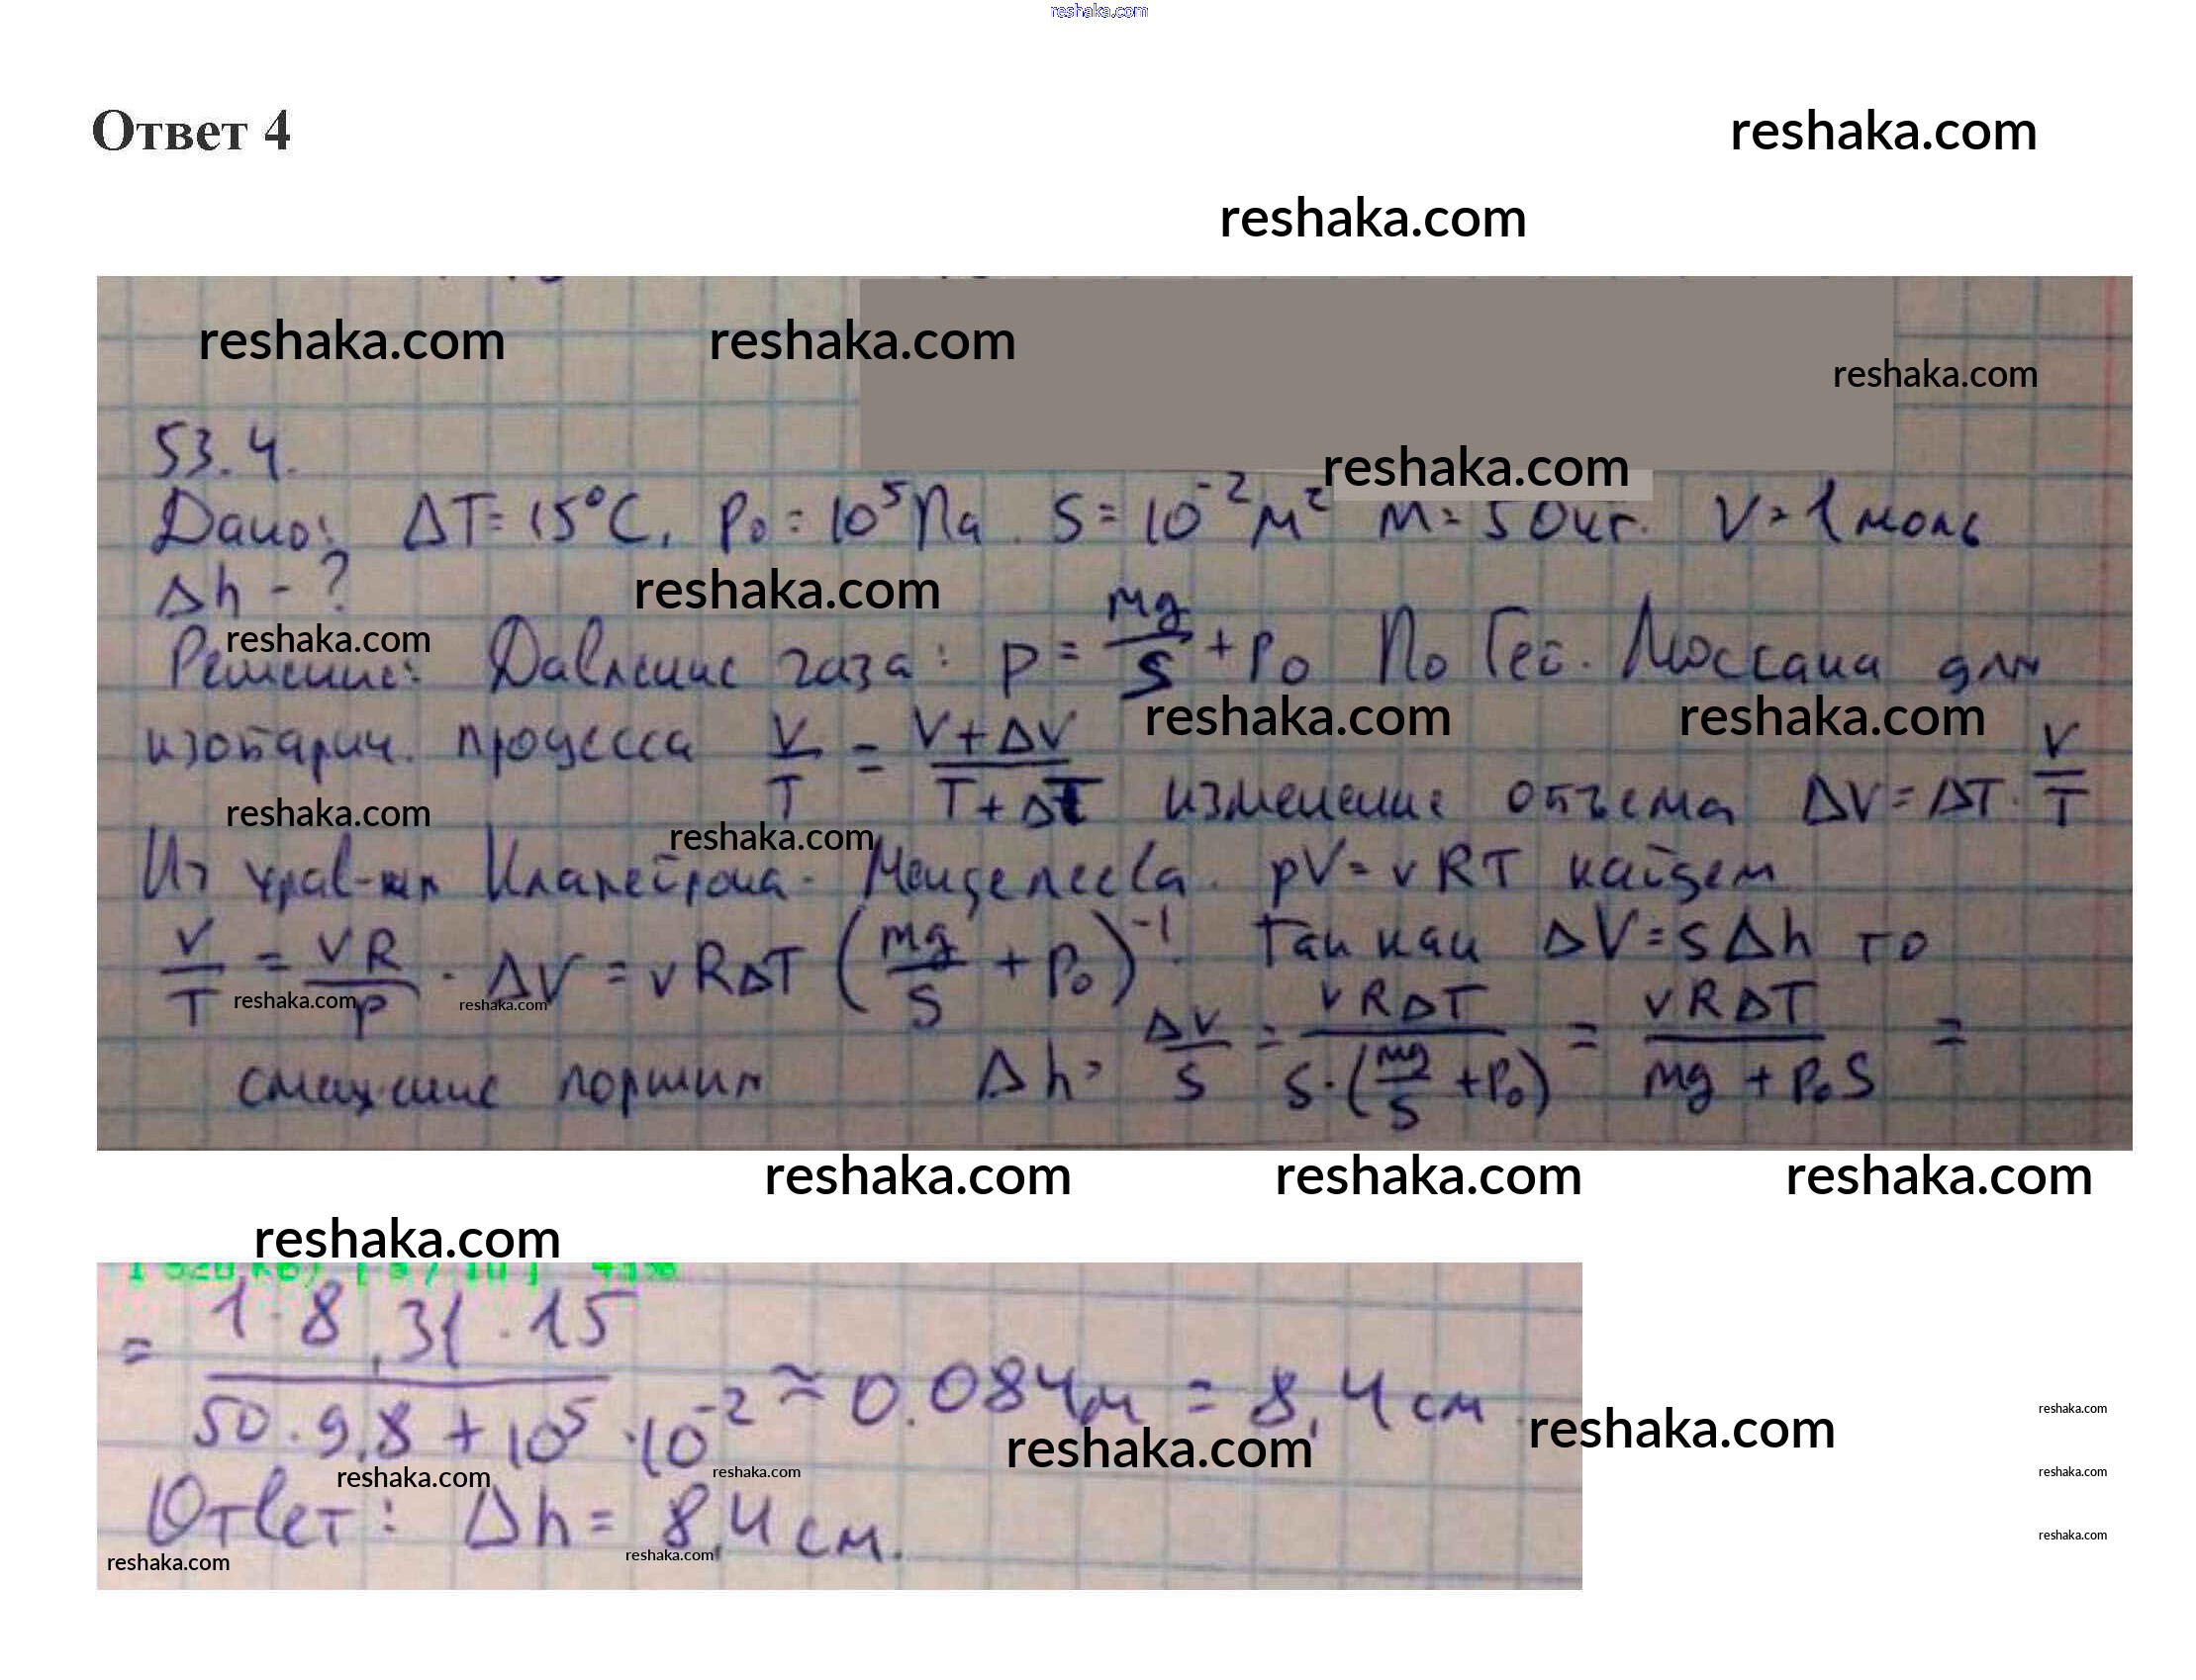 reshaka.com
Ответ 4
reshaka.com
reshaka.com
reshaka.com reshaka.com
reshaka.com
reshaka.com
53.4.
Дано: ΔT = 15°C, P₀ = 10⁵ Па. S = 10⁻² м² m = 50 кг. ν = 1 моль
Δh - ?
reshaka.com
reshaka.com
Решение: Давление газа: p = mg/S + P₀ По Гей. Люссака для
reshaka.com reshaka.com
изобарич. процесса V/T = V+ΔV/T+ΔT изменение объема ΔV = ΔT · V/T
reshaka.com
reshaka.com
Из урав-ия Клапейрона-Менделеева. pV = νRT найдем
V/T = νR/p . ΔV = νRΔT (mg/S + P₀)⁻¹. Так как ΔV = SΔh то
reshaka.com reshaka.com
смещение поршня Δh = ΔV/S = νRΔT/S·(mg/S + P₀) = νRΔT/mg + P₀S =
reshaka.com reshaka.com reshaka.com
reshaka.com
= 1·8,31·15/50·9,8 + 10⁵·10⁻² ≈ 0.084м = 8,4 см.
reshaka.com
reshaka.com
reshaka.com
reshaka.com
reshaka.com
reshaka.com
Ответ: Δh = 8,4 см.
reshaka.com
reshaka.com
reshaka.com